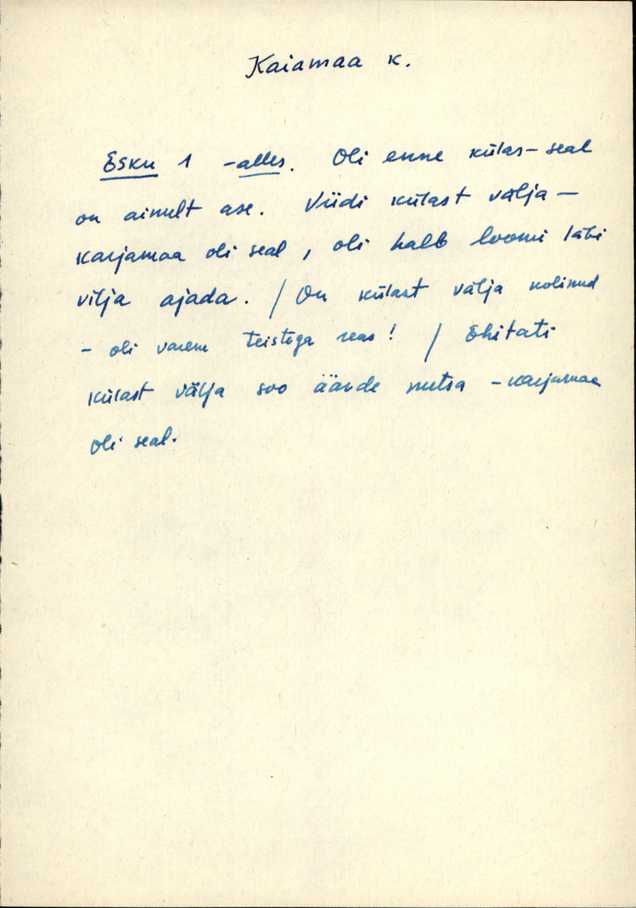 Kaiamaa k.
Esku 1 - alles. Oli enne külas - seal
on ainult ase. Viidi külast välja -
karjamaa oli seal, oli halb loomi läbi
vilja ajada. / On külast välja kolinud
- oli varem teistega reas! / Ehitati
külast välja soo äärde metsa - karjamaa
oli seal.